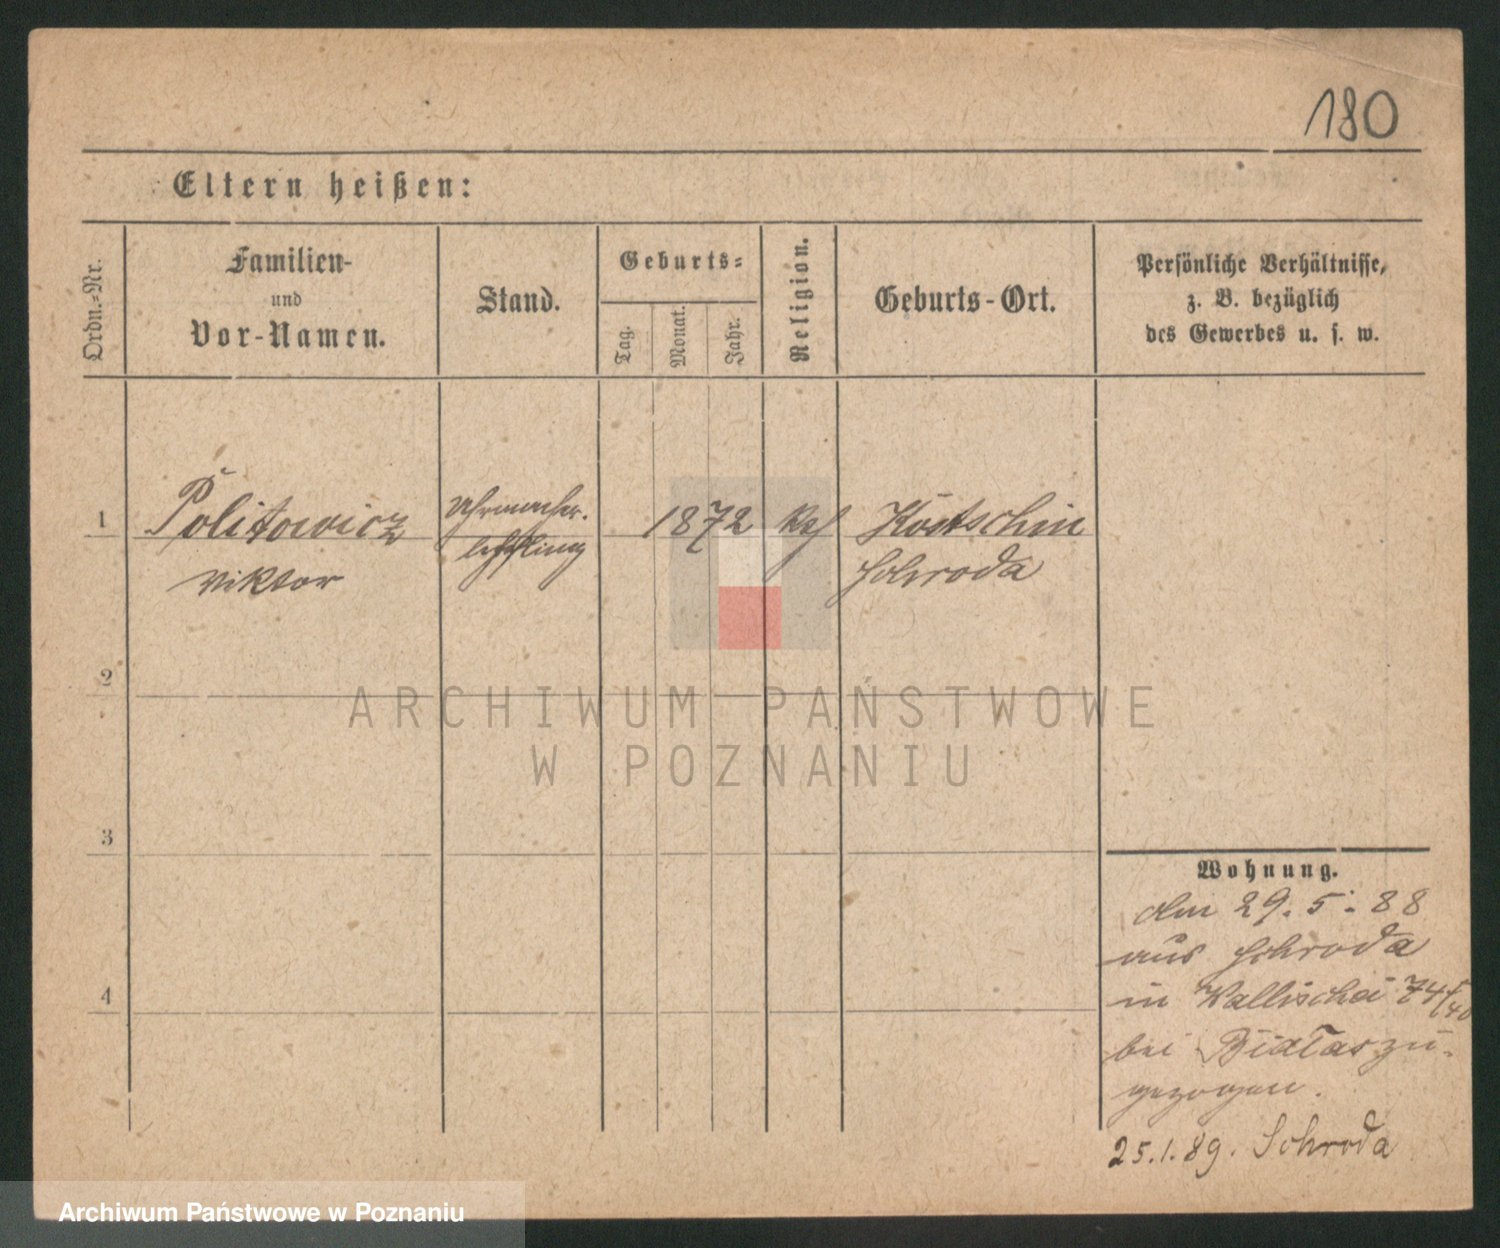 180
Eltern heißen:
Ordn.-Nr.
Familien-
und
Vor-Namen.
Stand.
Geburts-
Tag.
Monat.
Jahr.
Religion.
Geburts-Ort.
Persönliche Verhältnisse,
z. B. bezüglich
des Gewerbes u. s. w.
1
Politowicz
Viktor
Uhrmacher-
lehrling
1872
Kostschin
Schroda
2
3
4
Wohnung.
den 29. 5. 88
aus Schroda
in Wallischei 74/
bei Białas zu-
gezogen.
25.1.89. Schroda
ARCHIWUM PAŃSTWOWE
W POZNANIU
Archiwum Państwowe w Poznaniu